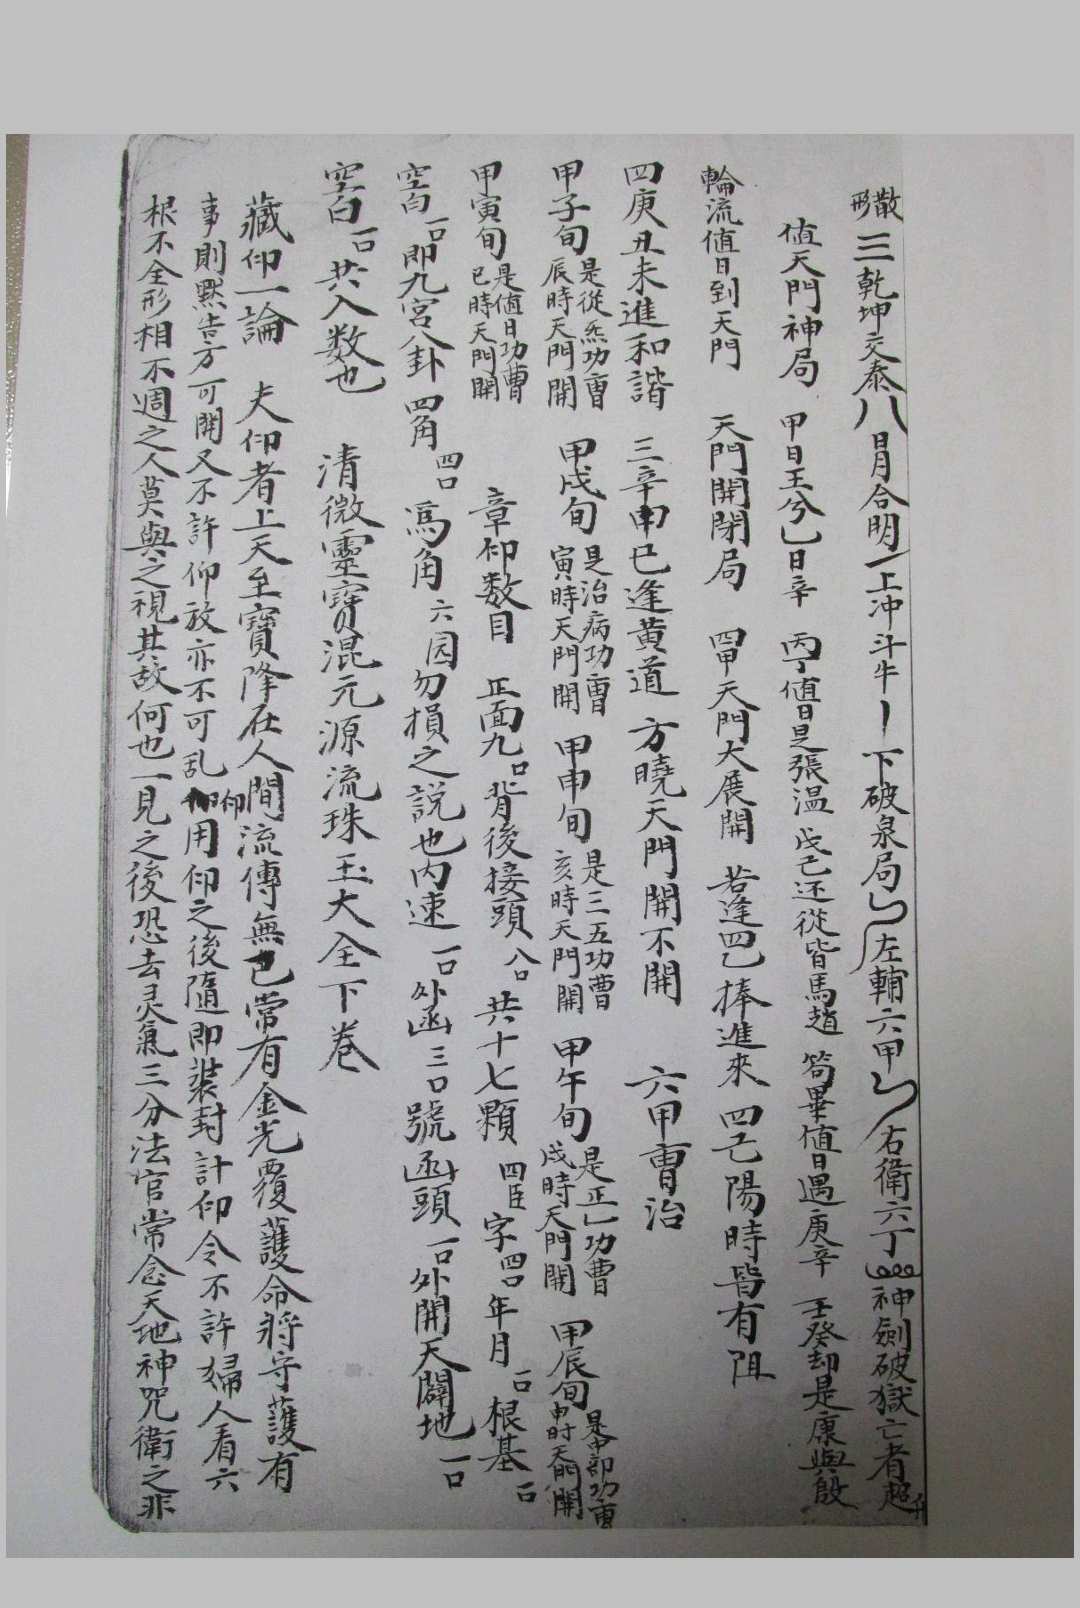 散形 三 乾坤交泰 八 日月合明 一 上冲斗牛 丨 下破泉局 左輔六甲 右衛六丁 神劍破獄亡者超升
值天門神局 甲日王兮乙日辛 丙丁值日是張温 戊己还從皆馬趙 苟畢值日遇庚辛 壬癸却是康與殷
輪流值日到天門 天門開閉局 四甲天門大展開 若逢四乙捧進來 四乙陽時皆有阻
四庚丑未進和諧 三辛申巳逢黄道 方曉天門開不開 六甲曹治
甲子旬 是從炁功曹 辰時天門開 甲戌旬 是治病功曹 寅時天門開 甲申旬 是三五功曹 亥時天門開 甲午旬 是正一功曹 戌時天門開 甲辰旬 是中部功曹 申时天門開
甲寅旬 是值日功曹 巳時天門開 章仰数目 正面九口 背後接頭八口 共十七顆 四臣字四口 年月一口 根基一口
空白一口 即九宫八卦 四角四口 馮角六园 勿損之説也 内速一口 外函三口 號函頭一口 外開天闢地一口
空白一口 共入数也 清微靈寶混元源流珠玉大全下卷
藏仰一論 夫仰者上天至寶降在人間流傳無已常有金光覆護命將守護有
事則黙告方可開又不許仰放亦不可乱仰用仰之後隨即装封計仰令不許婦人看六
根不全形相不週之人莫與之視其故何也一見之後恐去灵氣三分法官常念天地神咒衛之非